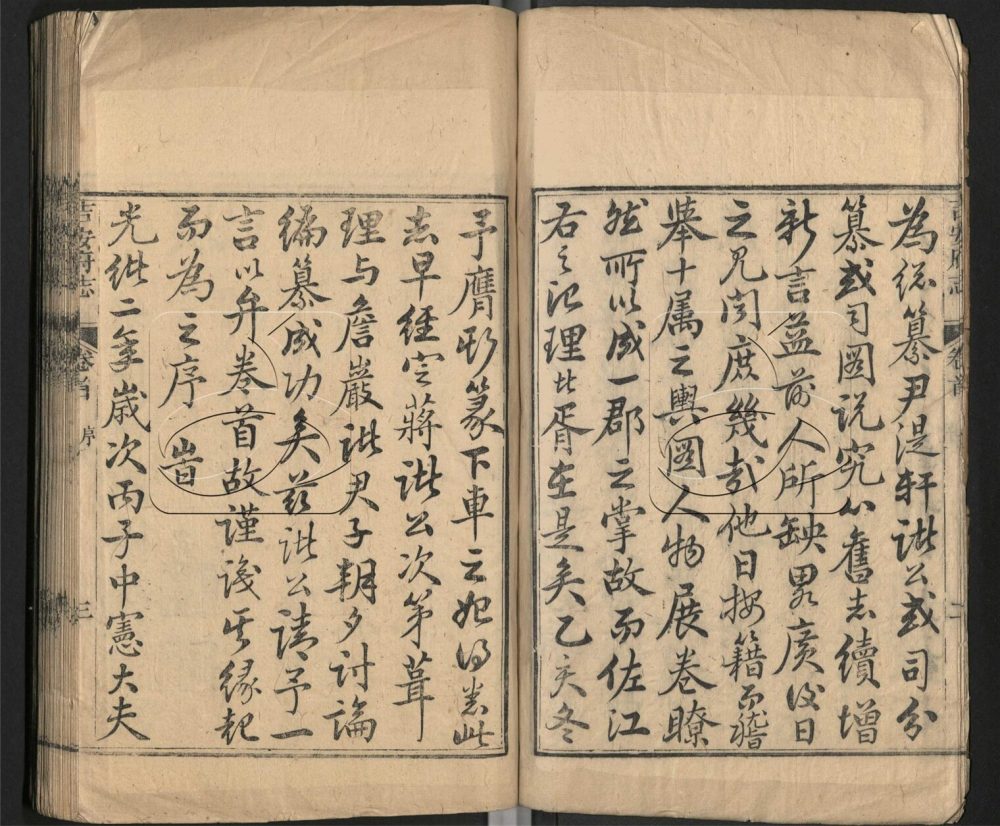 吉安府志 卷首 二
為總纂尹湜軒諸公或司分
纂或司圖說究心舊志續增
新言益前人所缺畧廣後日
之見聞庶幾哉他日按籍而稽
舉十属之輿圖人物展卷瞭
然所以成一郡之掌故而佐江
右之治理此胥在是矣乙亥冬
予膺新篆下車之始得悉此
志早經定蔣諸公次第葺
理与詹嚴諸君子朝夕討論
編纂成功矣茲諸公請予一
言以弁卷首故謹識其緣起
而為之序 旹
光緒二年歲次丙子中憲大夫
吉安府志 卷首 序 三